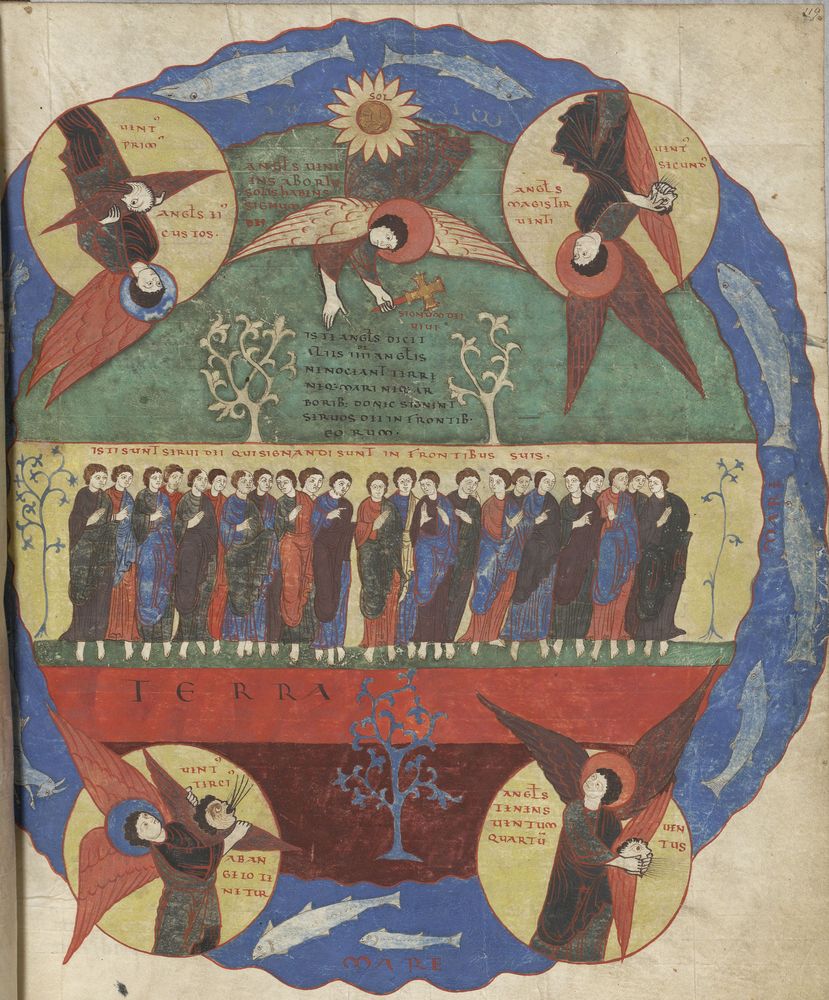 119
SOL
UENTꝰ
PRIMꝰ
ANGLS II
CUSTOS.
ANGLS UENI
ENS ABORTU
SOLIS HABENS
SIGNUM
DEI
UENTꝰ
SECUNDꝰ
ANGLS
MAGISTER
UENTI
SIGNUM DEI
UIUI
ISTE ANGLS DICIT
ILLIS IIII ANGLIS
NE NOCEANT TERRE
NEQ MARI NEQ AR
BORIB. DONEC SIGNENT
SERUOS DEI IN FRONTIB.
EORUM.
ISTI SUNT SERUI DEI QUI SIGNANDI SUNT IN FRONTIBUS SUIS.
MARE
TERRA
UENTꝰ
TERCIꝰ
ABAN
GELO TE
NETUR
ANGLS
TENENS
UENTUM
QUARTU
UEN
TUS
MARE